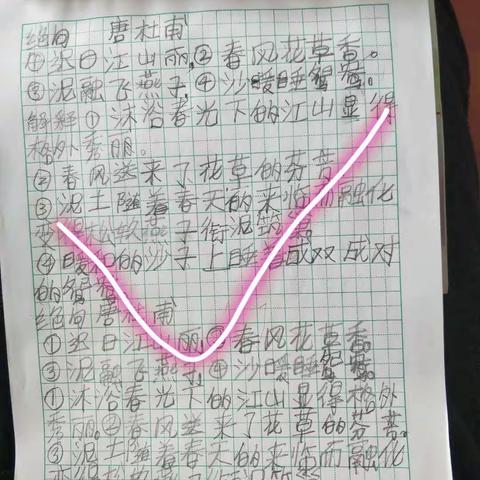 绝句 唐杜甫
①迟日江山丽,②春风花草香。
③泥融飞燕子,④沙暖睡鸳鸯。
解释①沐浴春光下的江山显得
格外秀丽。
②春风送来了花草的芬芳
③泥土随着春天的来临而融化
变得松软燕子衔泥筑巢
④暖和的沙子上睡着成双成对
的鸳鸯
绝句唐杜甫
①迟日江山丽,②春风花草香。
③泥融飞燕子,④沙暖睡鸳鸯。
①沐浴春光下的江山显得格外
秀丽。②春风送来了花草的芬芳。
③泥土随着春天的来临而融化
变得松软燕子衔泥筑